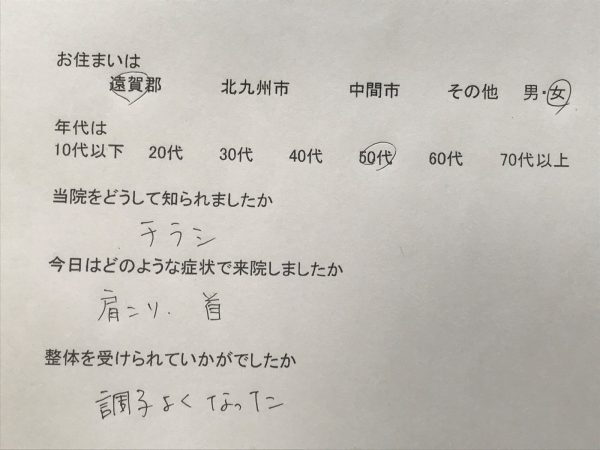 お住まいは
遠賀郡 北九州市 中間市 その他 男・女
年代は
10代以下 20代 30代 40代 50代 60代 70代以上
当院をどうして知られましたか
チラシ
今日はどのような症状で来院しましたか
肩こり、首
整体を受けられていかがでしたか
調子よくなった